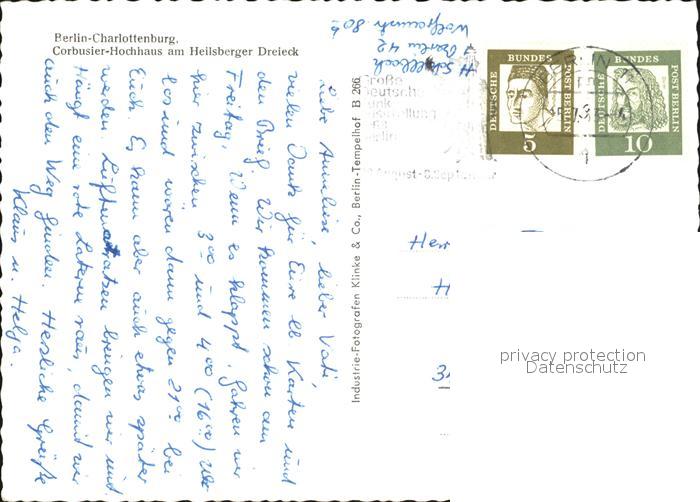 Berlin-Charlottenburg,
Corbusier-Hochhaus am Heilsberger Dreieck
Liebe Anneliese, lieber Vati,
vielen Dank für Eure lb Karten und
den Brief. Wir kommen schon am
Freitag. Wenn es klappt, fahren wir
hier zwischen 3⁰⁰ und 4⁰⁰ (16⁰⁰) Uhr
los und wären dann gegen 21⁰⁰ bei
Euch. Es kann aber auch etwas später
werden. Luftmatratzen bringen wir mit
Hängt eine rote Laterne raus, damit wir
auch den Weg finden. Herzliche Grüße
Klaus u Helga.
Industrie-Fotografen Klinke & Co., Berlin-Tempelhof B 266
1 Berlin 42
80 b
Große
Deutsche
Funk
Ausstellung
Berlin
August - 8. September
DEUTSCHE BUNDES POST BERLIN
5
DEUTSCHE BUNDES POST BERLIN
10
BERLIN
Herr
H
3
privacy protection
Datenschutz